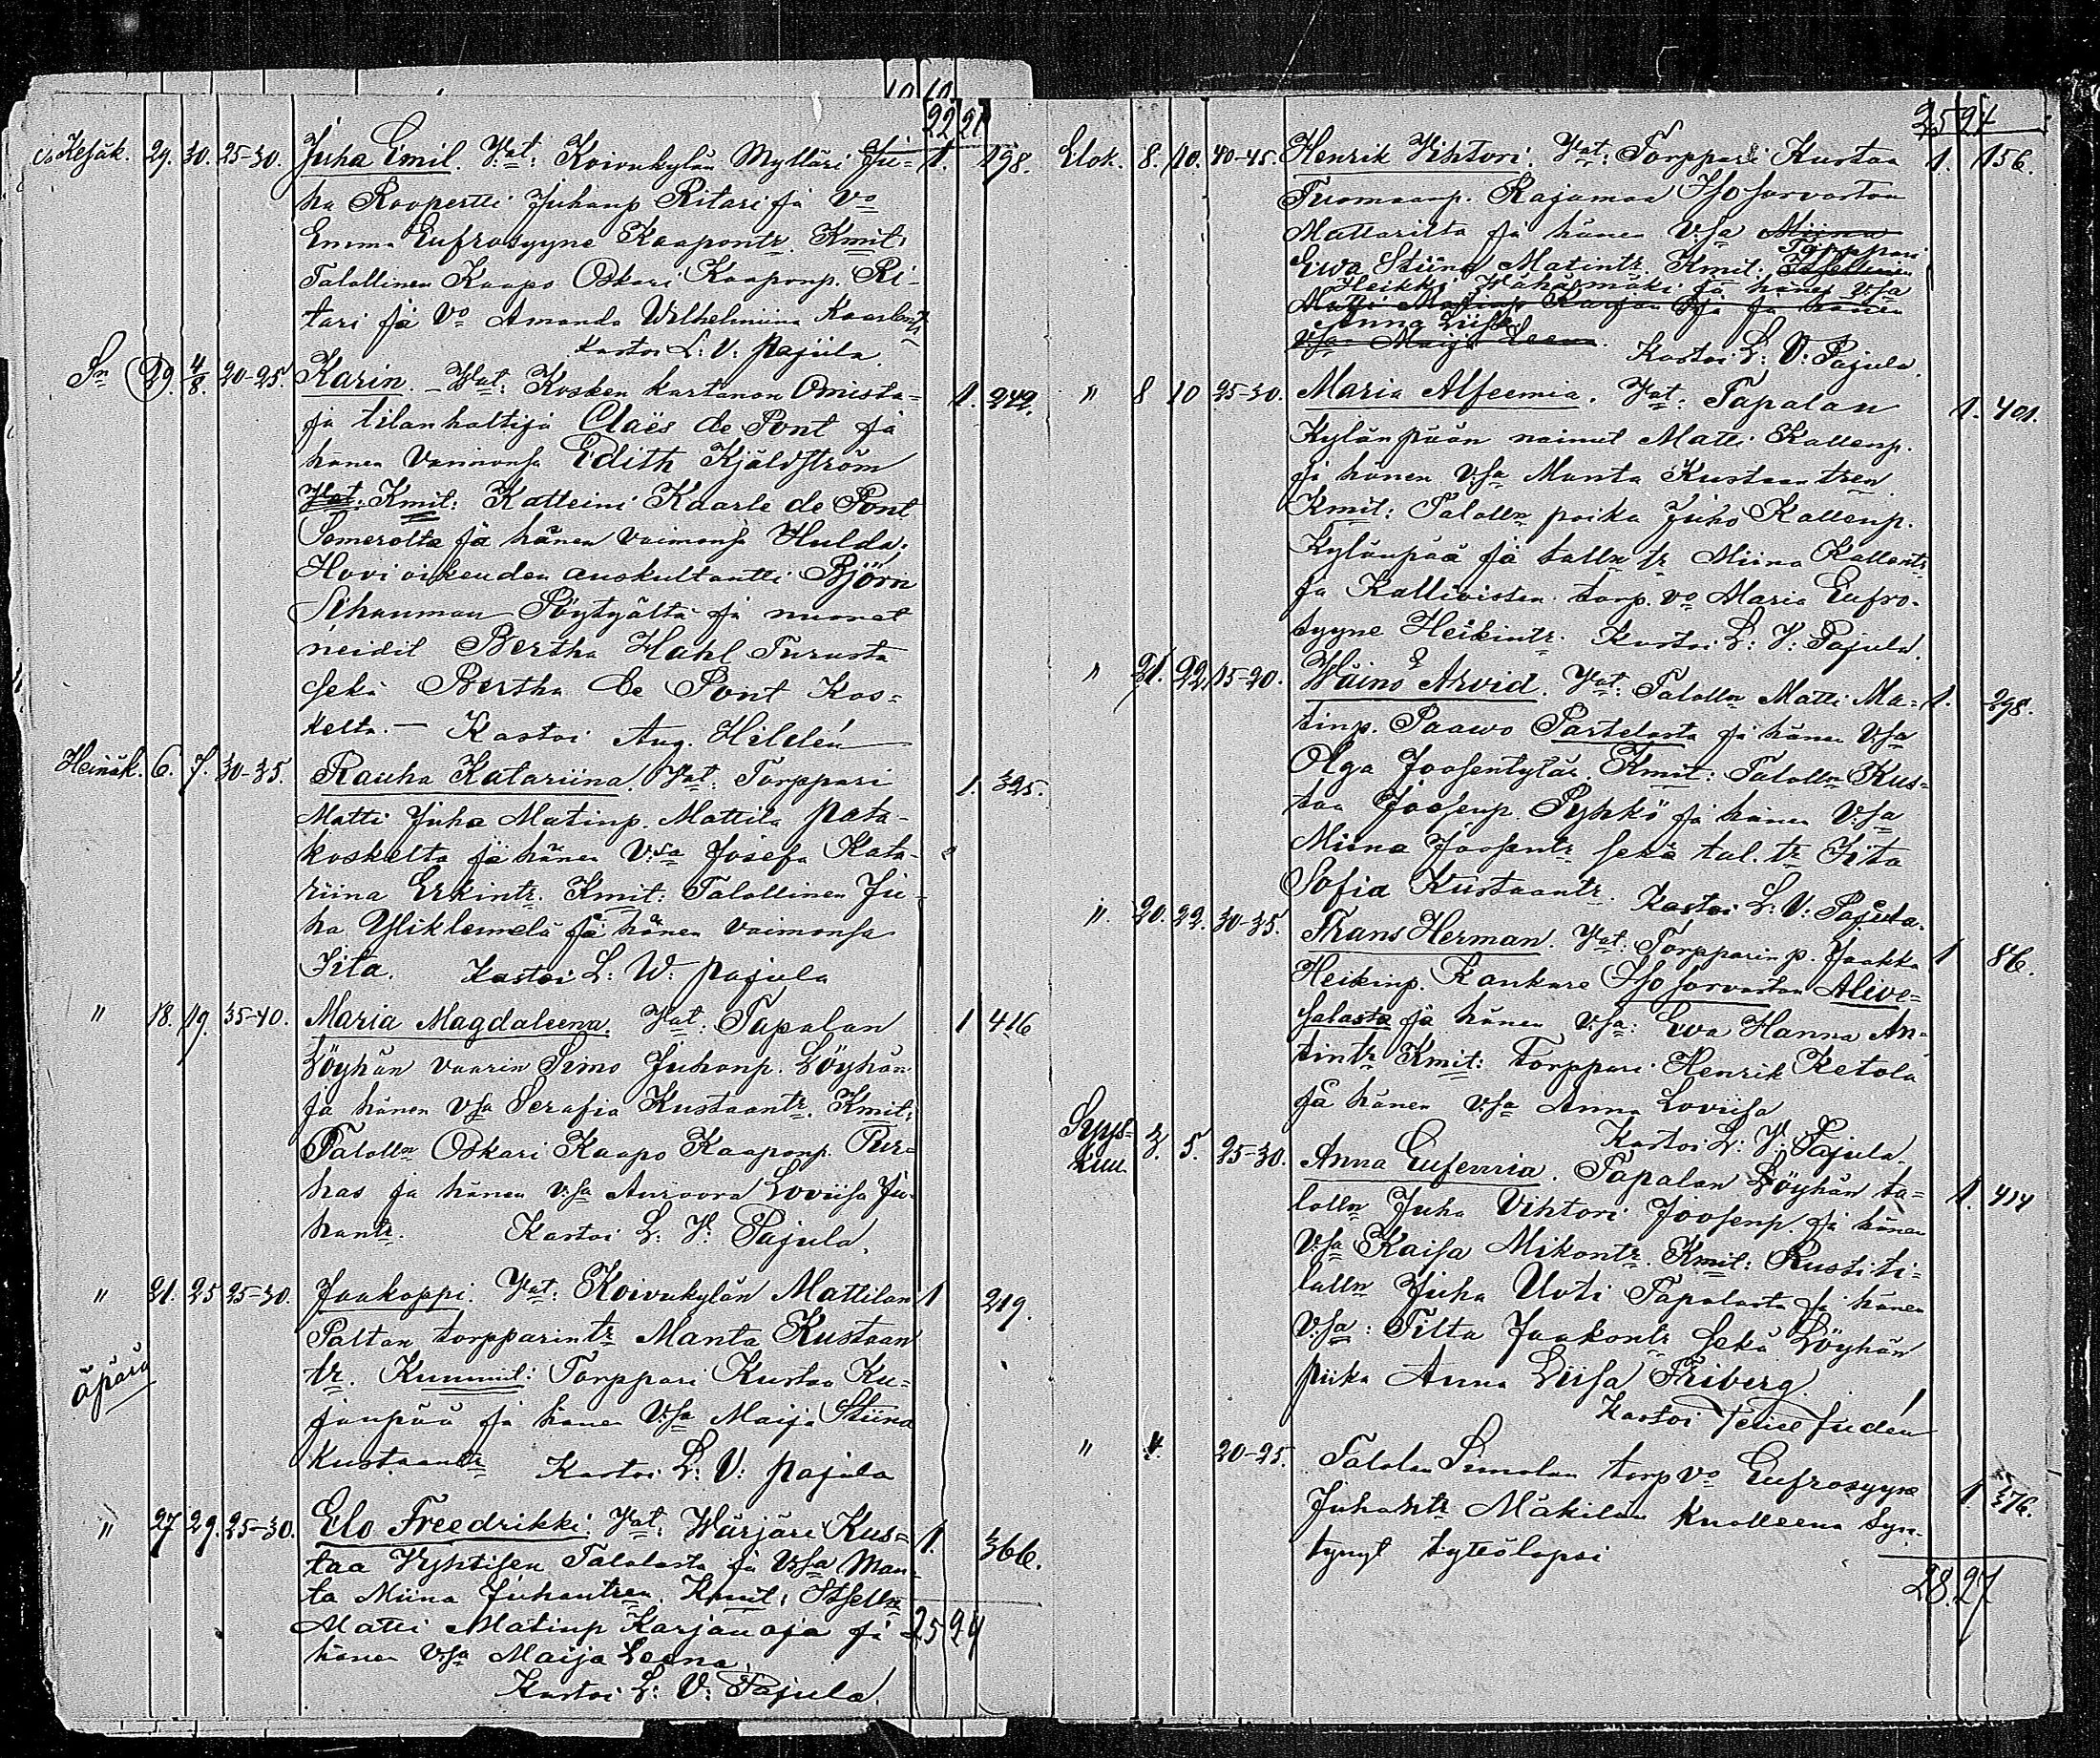 10 10
22 21
Kesäk. 29. 30. 25-30. Juha Eemil. Vat: Koivukylän Mylläri Ju= 1. 198.
ha Roopertti Juhanp Ritari ja Vo
Emma Eufrosyyne Kaapontr. Kmit:
Talollinen Kaapo Oskari Kaaponp. Ri-
tari ja Vo Amanda Wilhelmiina Kaarlontr
Kastoi L: V: Pajula
Sn 29. 4/8. 20-25. Karin. - Vat: Kosken kartanon Omista= 1. 242.
ja tilanhaltija Claës de Pont ja
hänen Vaimonsa Edith Kjäldström
Vat: Kmit: Katteini Kaarle de Pont
Somerolta ja hänen Vaimonsa Hulda;
Hovioikeuden auskultantti Björn
Schauman Pöytyältä ja nuoret
neidit Bertha Hahl Turusta
sekä Bertha de Pont Kos=
kelta. — Kastoi Aug. Hildén
Heinäk. 6. 7. 30-35. Rauha Katariina. Vat: Torppari 1. 325.
Matti Juha Matinp. Mattila Pata-
koskelta ja hänen V:sa Josefa Kata-
riina Erkintr. Kmit: Talollinen Ju-
ha Yliklemelä ja hänen vaimonsa
Iita. Kastoi L: W: Pajula
" 18. 19. 35-40. Maria Magdaleena. Vat: Tapalan 1 416
Löyhän vaarin Simo Juhanp. Löyhän
ja hänen Vsa Serafia Kustaantr. Kmit:
Talolln Oskari Kaapo Kaaponp. Pur=
has ja hänen v:sa Auroora Loviisa Ju-
hantr. Kastoi L: V: Pajula.
" 21. 25 25-30. Jaakoppi. Vat: Koivukylän Mattilan 1 219.
äpärä
Paltan torpparintr Manta Kustaan
tr. Kummit: Torppari Kustaa Ku=
janpää ja hänen Vsa Maija Stiina
Kustaantr Kastoi L: V: Pajula
" 27 29. 25-30. Elo Freedrikki. Vat: Wärjäri Kus= 1. 366.
taa Vyhtisen Talolasta ja V:sa Man-
ta Miina Juhantren. Kmit: Itselln
Matti Matinp Karjanoja ja 25 24
hänen V:sa Maija Leena.
Kastoi L: V: Pajula.
25 24
Elok. 8. 10. 40-45. Henrik Vihtori. Vat: Torppari Kustaa 1. 156.
Tuomaanp. Rajamaa Isosorvaston
Mattarilta ja hänen V:sa Miina
Torppari
Ewa Stiina Matintr. Kmit: Itsellinen
Heikki Vähämäki ja hänen v:sa
Matti Matinp Karjanoja ja hänen
Anna Liisa
V:sa Maija Leena. Kastoi L: V: Pajula.
" 8 10 25-30. Maria Alfeemia. Vat: Tapalan 1. 401.
Kylänpään nainut Matti Kallenp.
ja hänen V:sa Manta Kustaantren
Kmit: Talolln poika Juho Kallenp.
Kylänpää ja talln tr Miina Kallentr
ja Kallioisten torp. vo Maria Eufro-
syyne Heikintr. Kastoi L: V: Pajula.
" 21. 22. 15-20. Wäinö Arvid. Vat: Talolln Matti Ma= 1. 298.
tinp. Paawo Partelasta ja hänen V:sa
Olga Joosentytär. Kmit: Talolln Kus=
taa Joosenp. Pyhkö ja hänen V:sa
Miina Joosentr sekä tal. tr Iita
Sofia Kustaantr. Kastoi L: V: Pajula.
". 20. 22. 30-35. Frans Herman. Vat: Torpparinp. Jaakko 1 86.
Heikinp. Kankare Isosorvaston Alive=
salasta ja hänen v:sa: Ewa Hanna An=
tintr Kmit: Torppari Henrik Ketola
ja hänen V:sa Anna Loviisa
Kastoi L: V: Pajula.
Syys= 3. 5. 25-30. Anna Eufemia. Tapalan Löyhän ta= 1. 414
kuu
lolln Juha Vihtori Joosenp. ja hänen
V:sa Kaisa Mikontr. Kmit: Rustiti=
lalln Juha Uoti Tapalasta ja hänen
V:sa: Tilta Jaakontr sekä Löyhän
piika Anna Liisa Friberg.
Kastoi
" 4. 20-25. Talolan Simolan torp vo Eufrosyyne 1 376.
Juhantr Mäkilän Kuolleena Syn-
tynyt tyttölapsi
28. 27